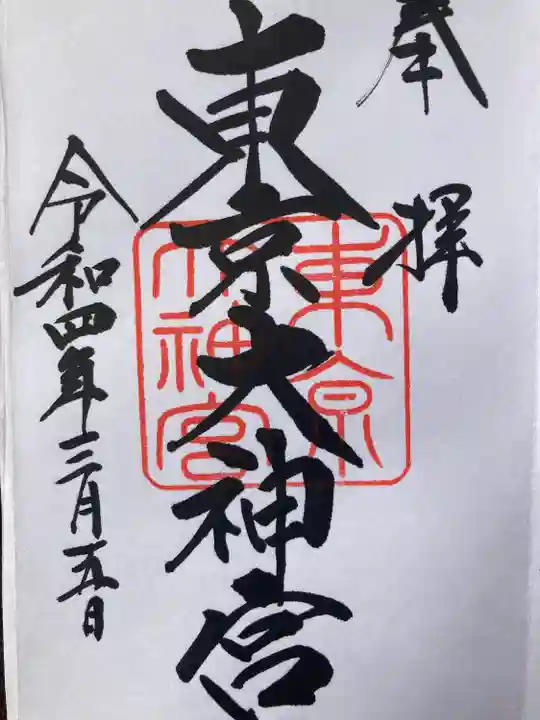 奉拝
東京大神宮
東京
大神宮
令和四年三月五日